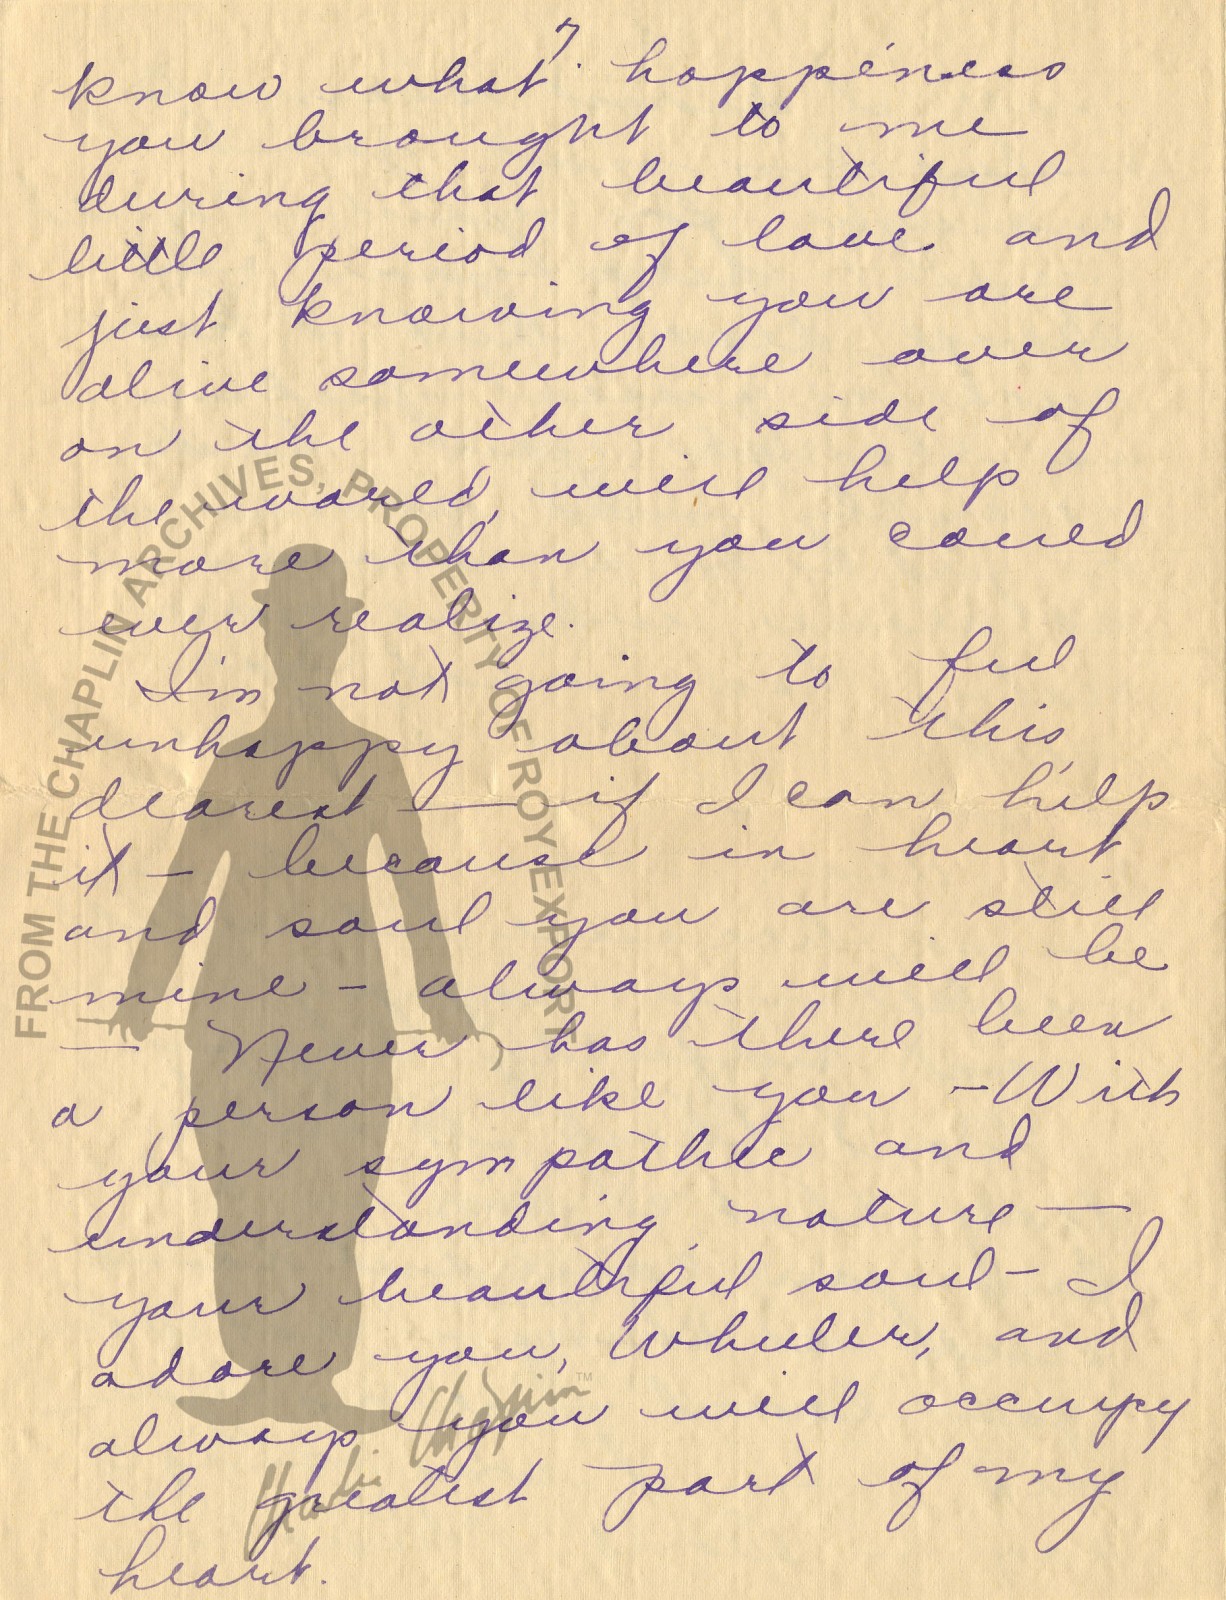 7
know what happiness
you brought to me
during that beautiful
little period of love and
just knowing you are
alive somewhere over
on the other side of
the world, will help
more than you could
ever realize.
I'm not going to feel
unhappy about this
dearest — if I can help
it — because in heart
and soul you are still
mine — always will be
— Never has there been
a person like you — With
your sympathie and
understanding nature —
your beautiful soul — I
adore you, Wheeler, and
always you will occupy
the greatest part of my
heart.
FROM THE CHAPLIN ARCHIVES, PROPERTY OF ROY EXPORT
Charlie Chaplin ™